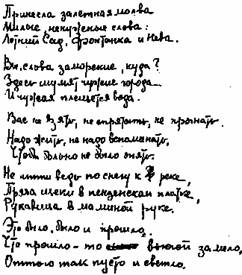 Принесла залетная молва
Милые, ненужные слова:
Летний Сад, Фонтанка и Нева.
Вы, слова заморские, куда?
Здесь шумят чужие города
И чужая плещется вода.
Вас не взять, не спрятать, не прогнать.
Надо жить, не надо вспоминать,
Чтобы больно не было опять.
Не идти ведь по снегу к реке,
Пряча щеки в пензенском платке,
Рукавица в маминой руке.
Это было, было и прошло.
Что прошло - то вьюгой замело,
Оттого так пусто и светло.